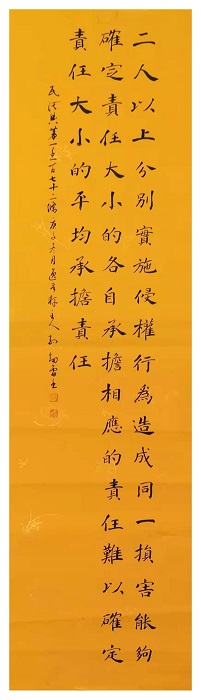 二人以上分別實施侵權行為造成同一損害能夠
確定責任大小的各自承擔相應的責任難以確定
責任大小的平均承擔責任
民法典第一千一百七十二條